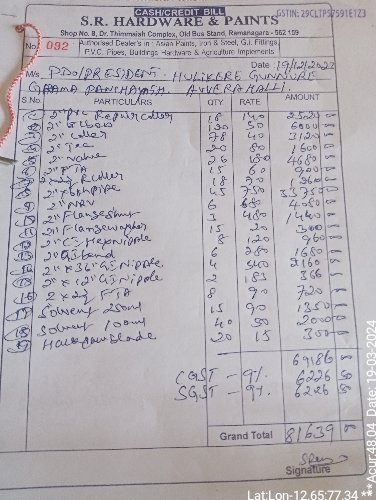 CASH/CREDIT BILL
GSTIN: 29CLTPS7591E1Z3
S.R. HARDWARE & PAINTS
Shop No. 8, Dr. Thimmaiah Complex, Old Bus Stand, Ramanagara - 562 159
No. 092
Authorised Dealer's in : Asian Paints, Iron & Steel, G.I. Fittings,
P.V.C. Pipes, Buildings Hardware & Agriculture Implements
Date 19/12/2023
M/s PDO/PRESIDENT HULIKERE GUNNURE
GRAMA PANCHAYATH, AVVERAHALLI.
S.No. PARTICULARS QTY RATE AMOUNT
2" PVC Repair Coller 18 140 2520
2" Elbow 120 50 6000
2" Coller 78 40 3120
2" Tee 20 80 1600
2" Valve 26 180 4680
2" FTA 15 60 900
Reducer 18 70
45 750 33750
2" NRV 6 680 4080
2" Flange 3 480 1440
2" Flange washer 15 20 300
2" GI Hex Nipple 8 120 960
2" GI bend 6 280 1680
2" x 36" GI Nipple 4 540 2160
2" x 12" GI Nipple 2 183 366
2 x 2½ FTA 8 90 720
Solvent 250ml 15 90 1350
Solvent 100ml 40 50 2000
Hacksaw blade 20 15 300
69186 00
CGST - 9% 6226 50
SGST - 9% 6226 50
Grand Total 81639 00
Signature
Lat:Lon-12.65:77.34
**Acur:48.04 Date: 19-03-2024